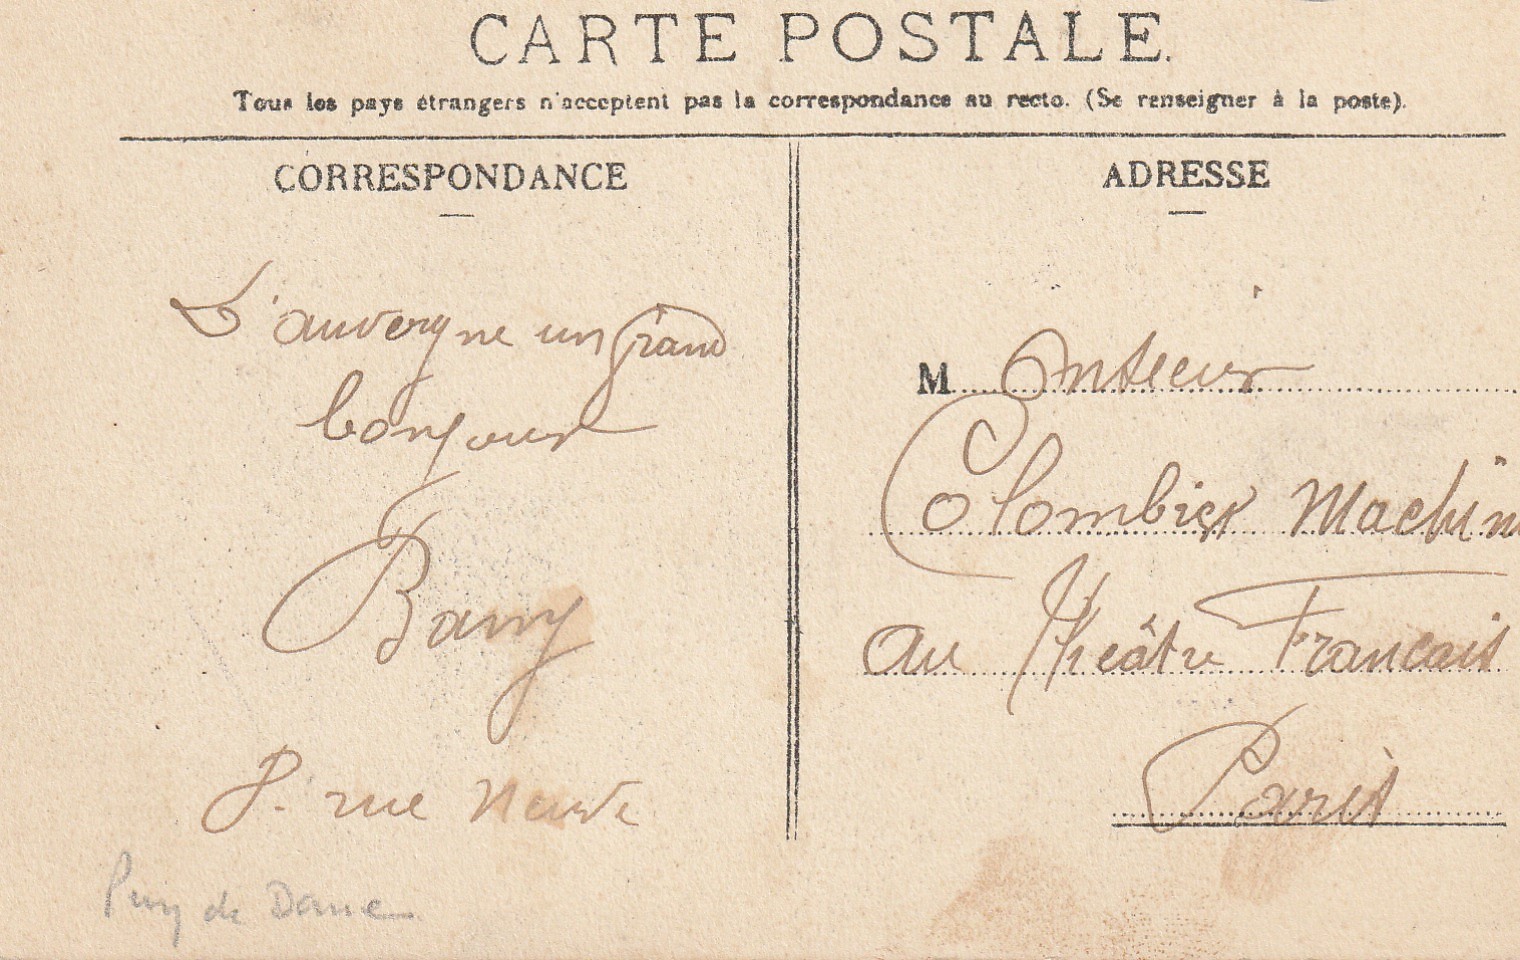 CARTE POSTALE.
Tous les pays étrangers n'acceptent pas la correspondance au recto. (Se renseigner à la poste).
CORRESPONDANCE
D'auvergne un grand
bonjour
Barry
8. rue Neuve
Puy de Dome
ADRESSE
Monsieur
Colombier Machin
au Théâtre Francais
Paris